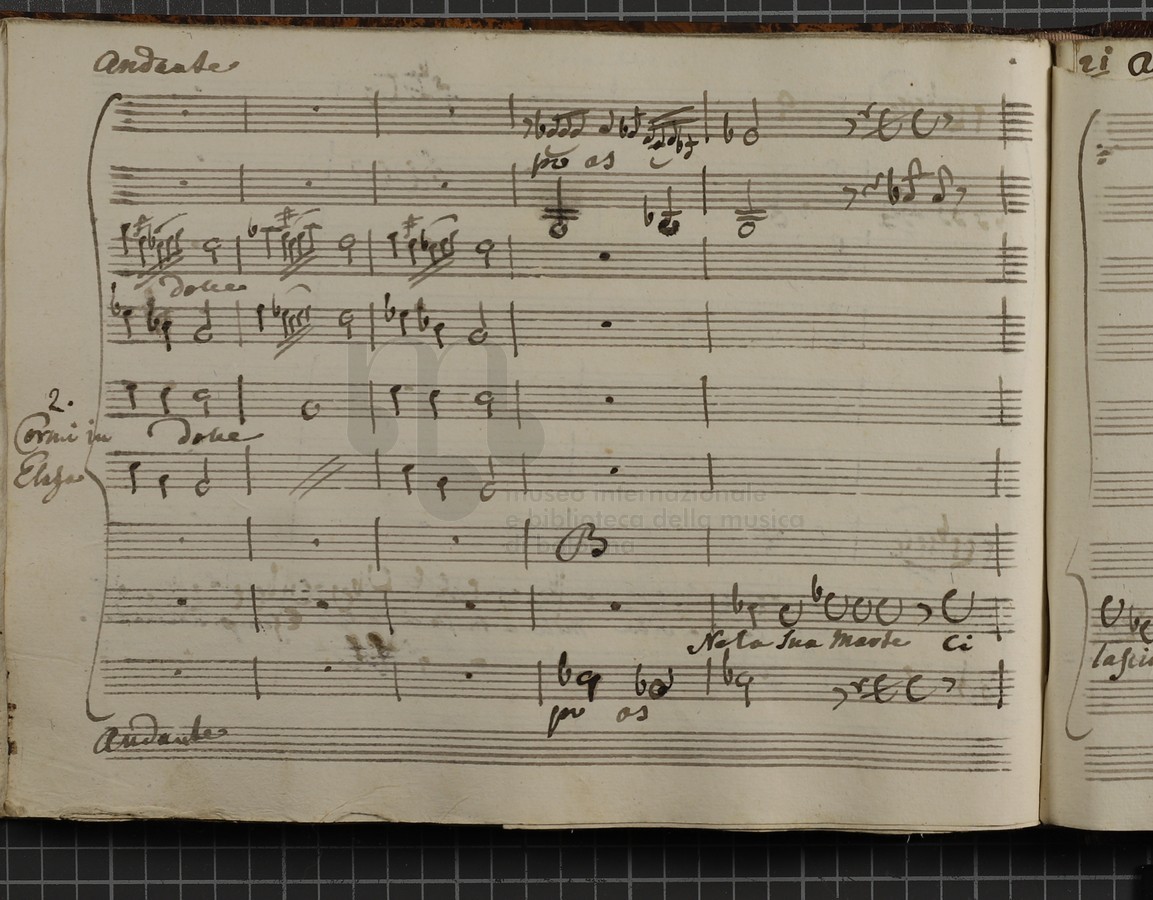 Andante
po as
dolce
2.
Corni in
Elafa
dolce
museo internazionale
e biblioteca della musica
di bologna
Ne la Sua Morte Ci
po as
Andante